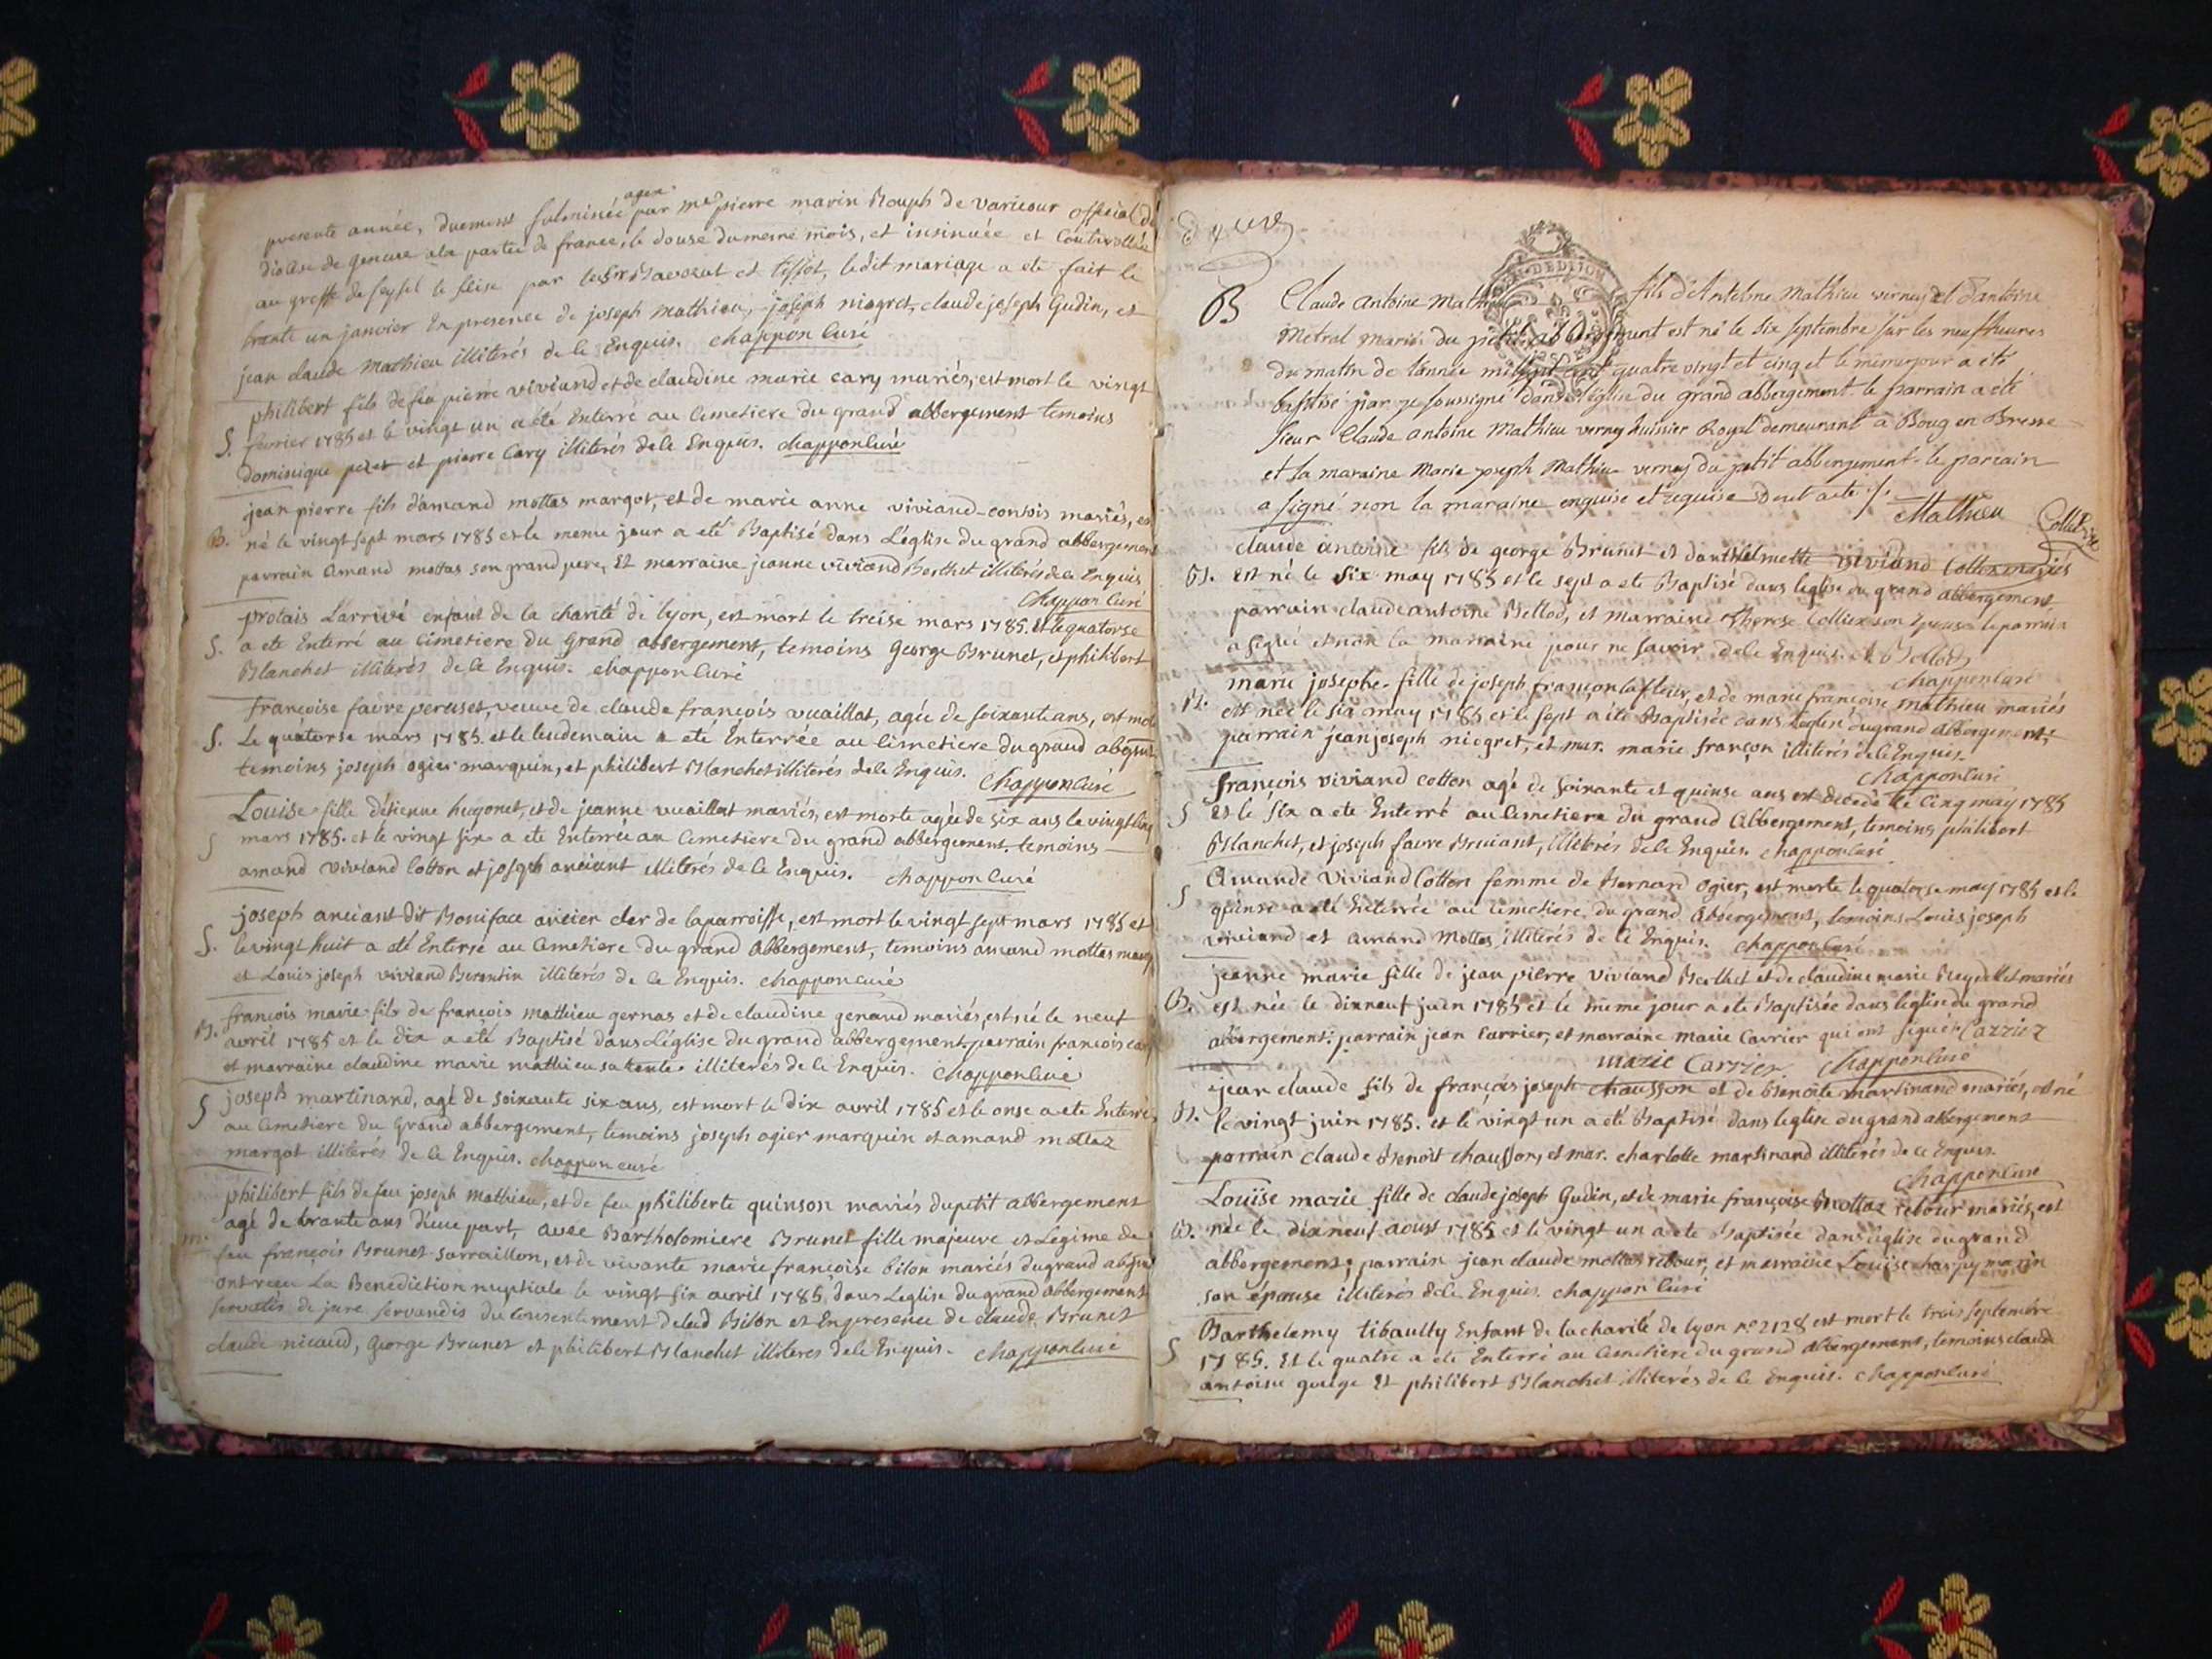 agex
presente année, duement fulminée par me pierre marin Rouph de varicour official du
diocese de geneve a la partie de france, le douse du meme mois, et insinuée et Controllée
au greffe de seysel le seise par les sr Bavosat et tissot, ledit mariage a eté fait le
trante un janvier En presence de joseph mathieu, joseph niogret, claude joseph Gudin, et
jean claude mathieu illiterés de le Enquis. chappon curé
philibert fils de feu pierre viviand et de claudine marie cary mariés, est mort le vingt
S. fevrier 1785 et le vingt un a ete Enterré au Cimetiere du grand abbergement temoins
dominique et pierre Cary illiterés de le Enquis. chappon curé
jean pierre fils d'amand mottas margot, et de marie anne viviand-contois mariés, est
B. né le vingt sept mars 1785 et le meme jour a eté Baptisé dans L'église du grand abbergement
parrain amand mottas son grand pere, Et marraine jeanne viviand Berthet illiterés de le Enquis
chappon curé
protais Larrivé enfant de la charité de lyon, est mort le treise mars 1785. et le quatorse
S. a ete Enterré au Cimetiere du Grand abbergement, temoins George Brunet, et philibert
Blanchet illiterés de le Enquis. chappon curé
françoise favre peruset, veuve de claude françois vuaillat, agée de soixante ans, est mo
S. Le quatorse mars 1785. et le lendemain a ete Enterrée au Cimetiere du grand abgmt
temoins joseph ogier marquin, et philibert Blanchet illiterés de le Enquis.
chappon curé
Louise fille d'étienne hugonet, et de jeanne vuaillat mariés, est morte agée de six ans le vingt cinq
S mars 1785. et le vingt six a ete Enterrée au Cimetiere du grand abbergement. temoins
amand viviand Cotton et joseph anciant illiterés de le Enquis. chappon curé
joseph anciant dit Boniface ancien cler de la parroisse, est mort le vingt sept mars 1785 et
S. le vingt huit a eté Enterré au Cimetiere du grand abbergement, temoins amand mottas marg
et Louis joseph viviand Berentin illiterés de le Enquis. chappon curé
françois marie fils de françois mathieu gernas et de claudine genand mariés, est né le neuf
B. avril 1785 et le dix a été Baptisé dans L'église du grand abbergement parrain francois cary
et marraine claudine marie mathieu sa tante illiterés de le Enquis. chappon curé
joseph martinand, agé de soixante six ans, est mort le dix avril 1785 et le onse a ete Enterré
S au Cimetiere du Grand abbergement, temoins joseph ogier marquin et amand mottaz
margot illiterés de le Enquis. chappon curé
philibert fils de feu joseph mathieu, et de feu philiberte quinson mariés du petit abbergement
agé de trante ans d'une part, avec Bartholomiere Brunet fille majeure et Légime de
m. feu françois Brunet sarraillon, et de vivante marie françoise bilon mariés du grand abgmt
ont reçu La Benediction nuptiale le vingt six avril 1785, dans L'eglise du grand abbergement
servatis de jure servandis du consentement de lad Bilon et En presence de claude Brunet
claude nicaud, George Brunet et philibert Blanchet illiteres de le Enquis. chappon curé
deux
DE DIJON
B Claude antoine Mathieu fils d'Antelme Mathieu verney et d'antoine
Metral mariés du petit abbergement est né le six septembre sur les neuf heures
du matin de l'année mil sept cent quatre vingt et cinq et le même jour a été
baptisé par je soussigné dans l'église du grand abbergement. le parrain a été
sieur Claude antoine Mathieu verney huissier Royal demeurant à Bourg en Bresse
et la maraine Marie joseph Mathieu verney du petit abbergement. le parain
a signé non la maraine enquise et requise dont acte ./.
Mathieu
claude antoine fils de george Brunet et d'anthelmette viviand Collex mariés
B. est né le six may 1785 et le sept a ete Baptisé dans l'eglise du grand abbergement.
parrain claude antoine Bellod, et marraine therese Colliex son épouse le parrain
a signé et non la marraine pour ne savoir de le Enquis. Bellod
chappon curé
marie josephe fille de joseph françon lafleur, et de marie françoise mathieu mariés
B. est née le six may 1785 et le sept a ete Baptisée dans L'eglise du grand abbergement,
parrain jean joseph niogret, et mar. marie françon illiterés de le Enquis.
chappon curé
françois viviand cotton agé de soixante et quinse ans est decedé le cinq may 1785
S Et le six a ete Enterré au Cimetiere du grand abbergement, temoins philibert
Blanchet, et joseph favre Bruiant, illiterés de le Enquis. chappon curé
Amande Viviand Cotton femme de Bernard ogier, est morte le quatorse may 1785 et le
S quinse a eté Enterrée au Cimetiere du grand abbergement, temoins Louis joseph
viviand et amand Mottas illiterés de le Enquis. chappon curé
jeanne marie fille de jean pierre viviand Berthet et de claudine marie Reydellet mariés
B. est née le dixneuf juin 1785 et le même jour a ete Baptisée dans l'église du grand
abbergement: parrain jean Carrier, et marraine marie Carrier qui ont signé. Carrier
marie Carrier. chappon curé
jean claude fils de françois joseph chausson et de Benoite martinand mariés, est né
B. le vingt juin 1785. et le vingt un a été Baptisé dans l'eglise du grand abbergement
parrain claude Benoit chausson, et mar. charlotte martinand illiterés de le Enquis.
chappon curé
Louïse marie fille de claude joseph Gudin, et de marie françoise Mottaz rebour mariés, est
B. née le dixneuf aoust 1785 et le vingt un a ete Baptisée dans l'eglise du grand
abbergement; parrain jean claude mottas rebour, et marraine Louise charpy marin
son épouse illiterés de le Enquis. chappon curé
Barthelemy tibaully Enfant de la charité de lyon no 2128 est mort le trois septembre
S 1785. Et le quatre a ete Enterré au Cimetiere du grand abbergement, temoins claude
antoine gouge Et philibert Blanchet illiterés de le Enquis. chappon curé